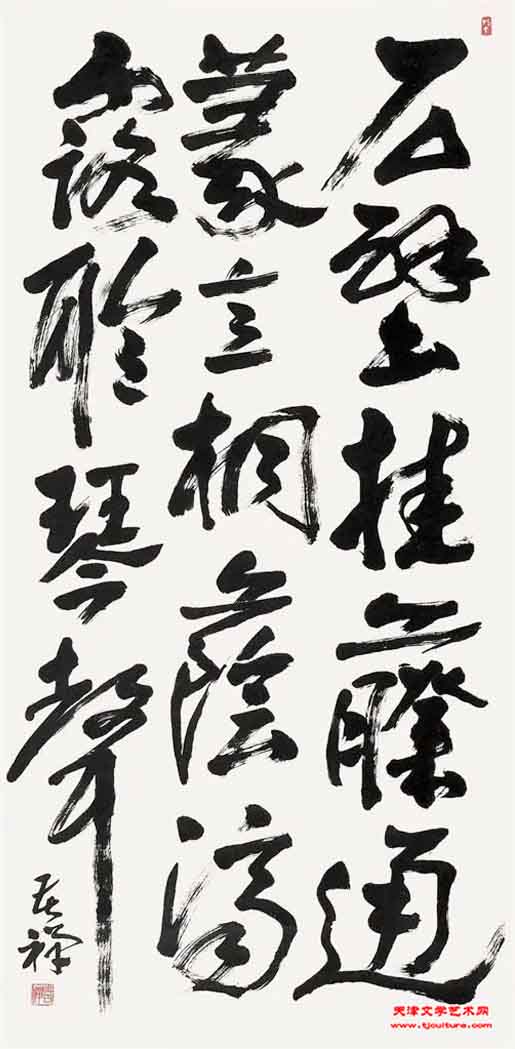 石壁挂藤通
篆意桐蔭滴
露聆琴聲
祥
天津文学艺术网
www.tjculture.com